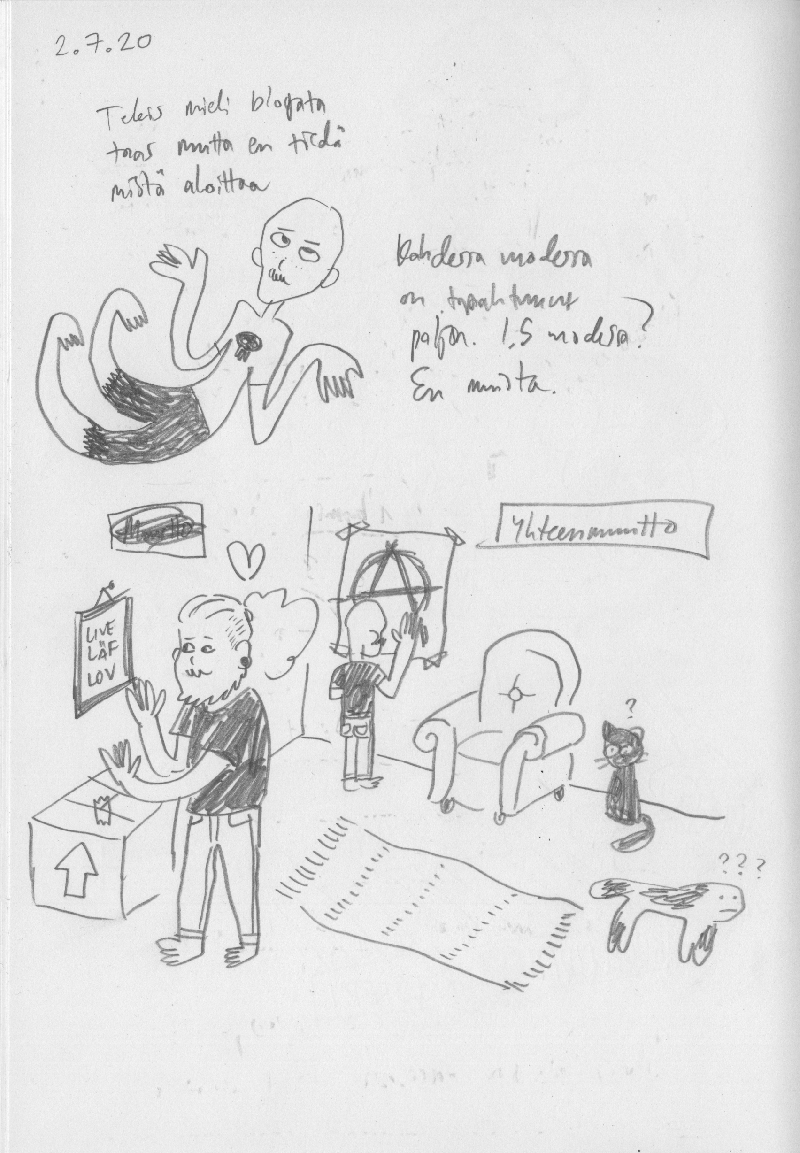 2.7.20
Tekis mieli blogata
taas mutta en tiedä
mistä aloittaa
Kahdessa vuodessa
on tapahtunut
paljon. 1,5 vuodessa?
En muista.
Muutto
Yhteenmuutto
LIVE
LÄF
LOV
?
???